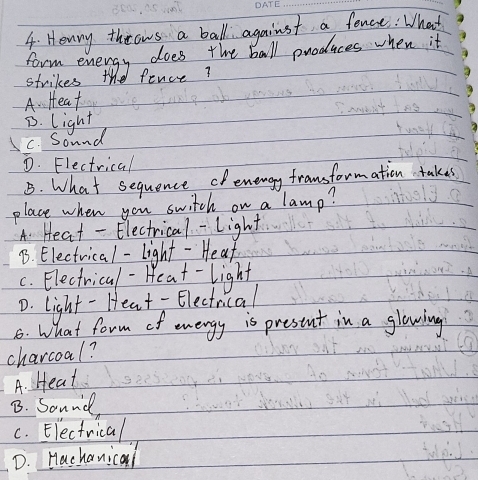 DATE
4. Henry throws a ball against a fence. What
form energy does the ball produces when it
strikes the fence ?
A. Heat
B. Light
C. Sound
D. Electrical
5. What sequence of energy transformation takes
place when you switch on a lamp?
A. Heat - Electrical - Light
B. Electrical - Light - Heat
C. Electrical - Heat - Light
D. Light - Heat - Electrical
6. What form of energy is present in a glowing
charcoal ?
A. Heat
B. Sound
C. Electrical
D. Machanical